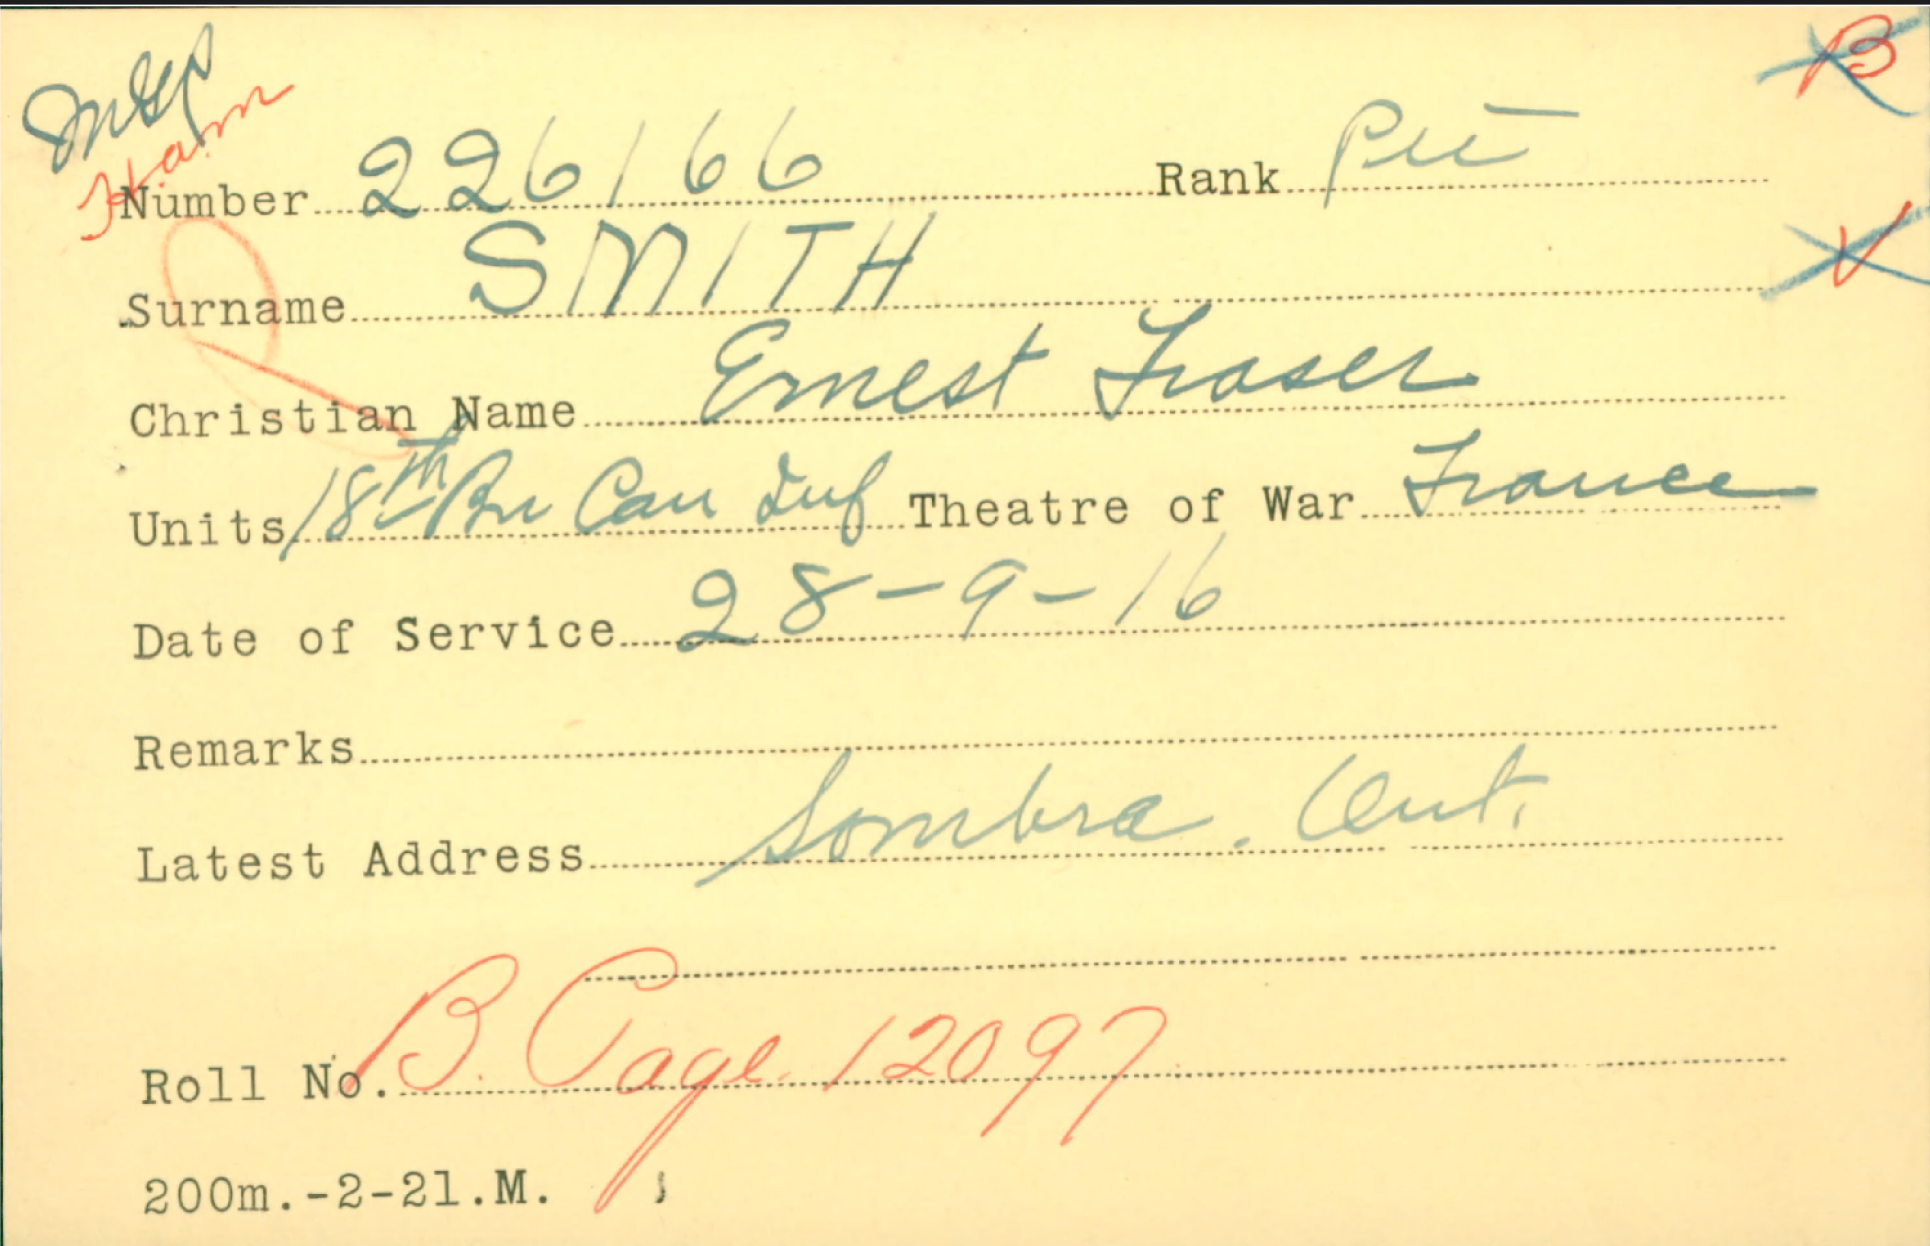 B
Number 226166 Rank Pte
V
Surname SMITH
Christian Name Ernest Fraser
Units 18th Bn Can Inf Theatre of War France
Date of Service 28-9-16
Remarks
Latest Address Sombra. Ont.
Roll No. B. Page 12097
200m.-2-21.M.